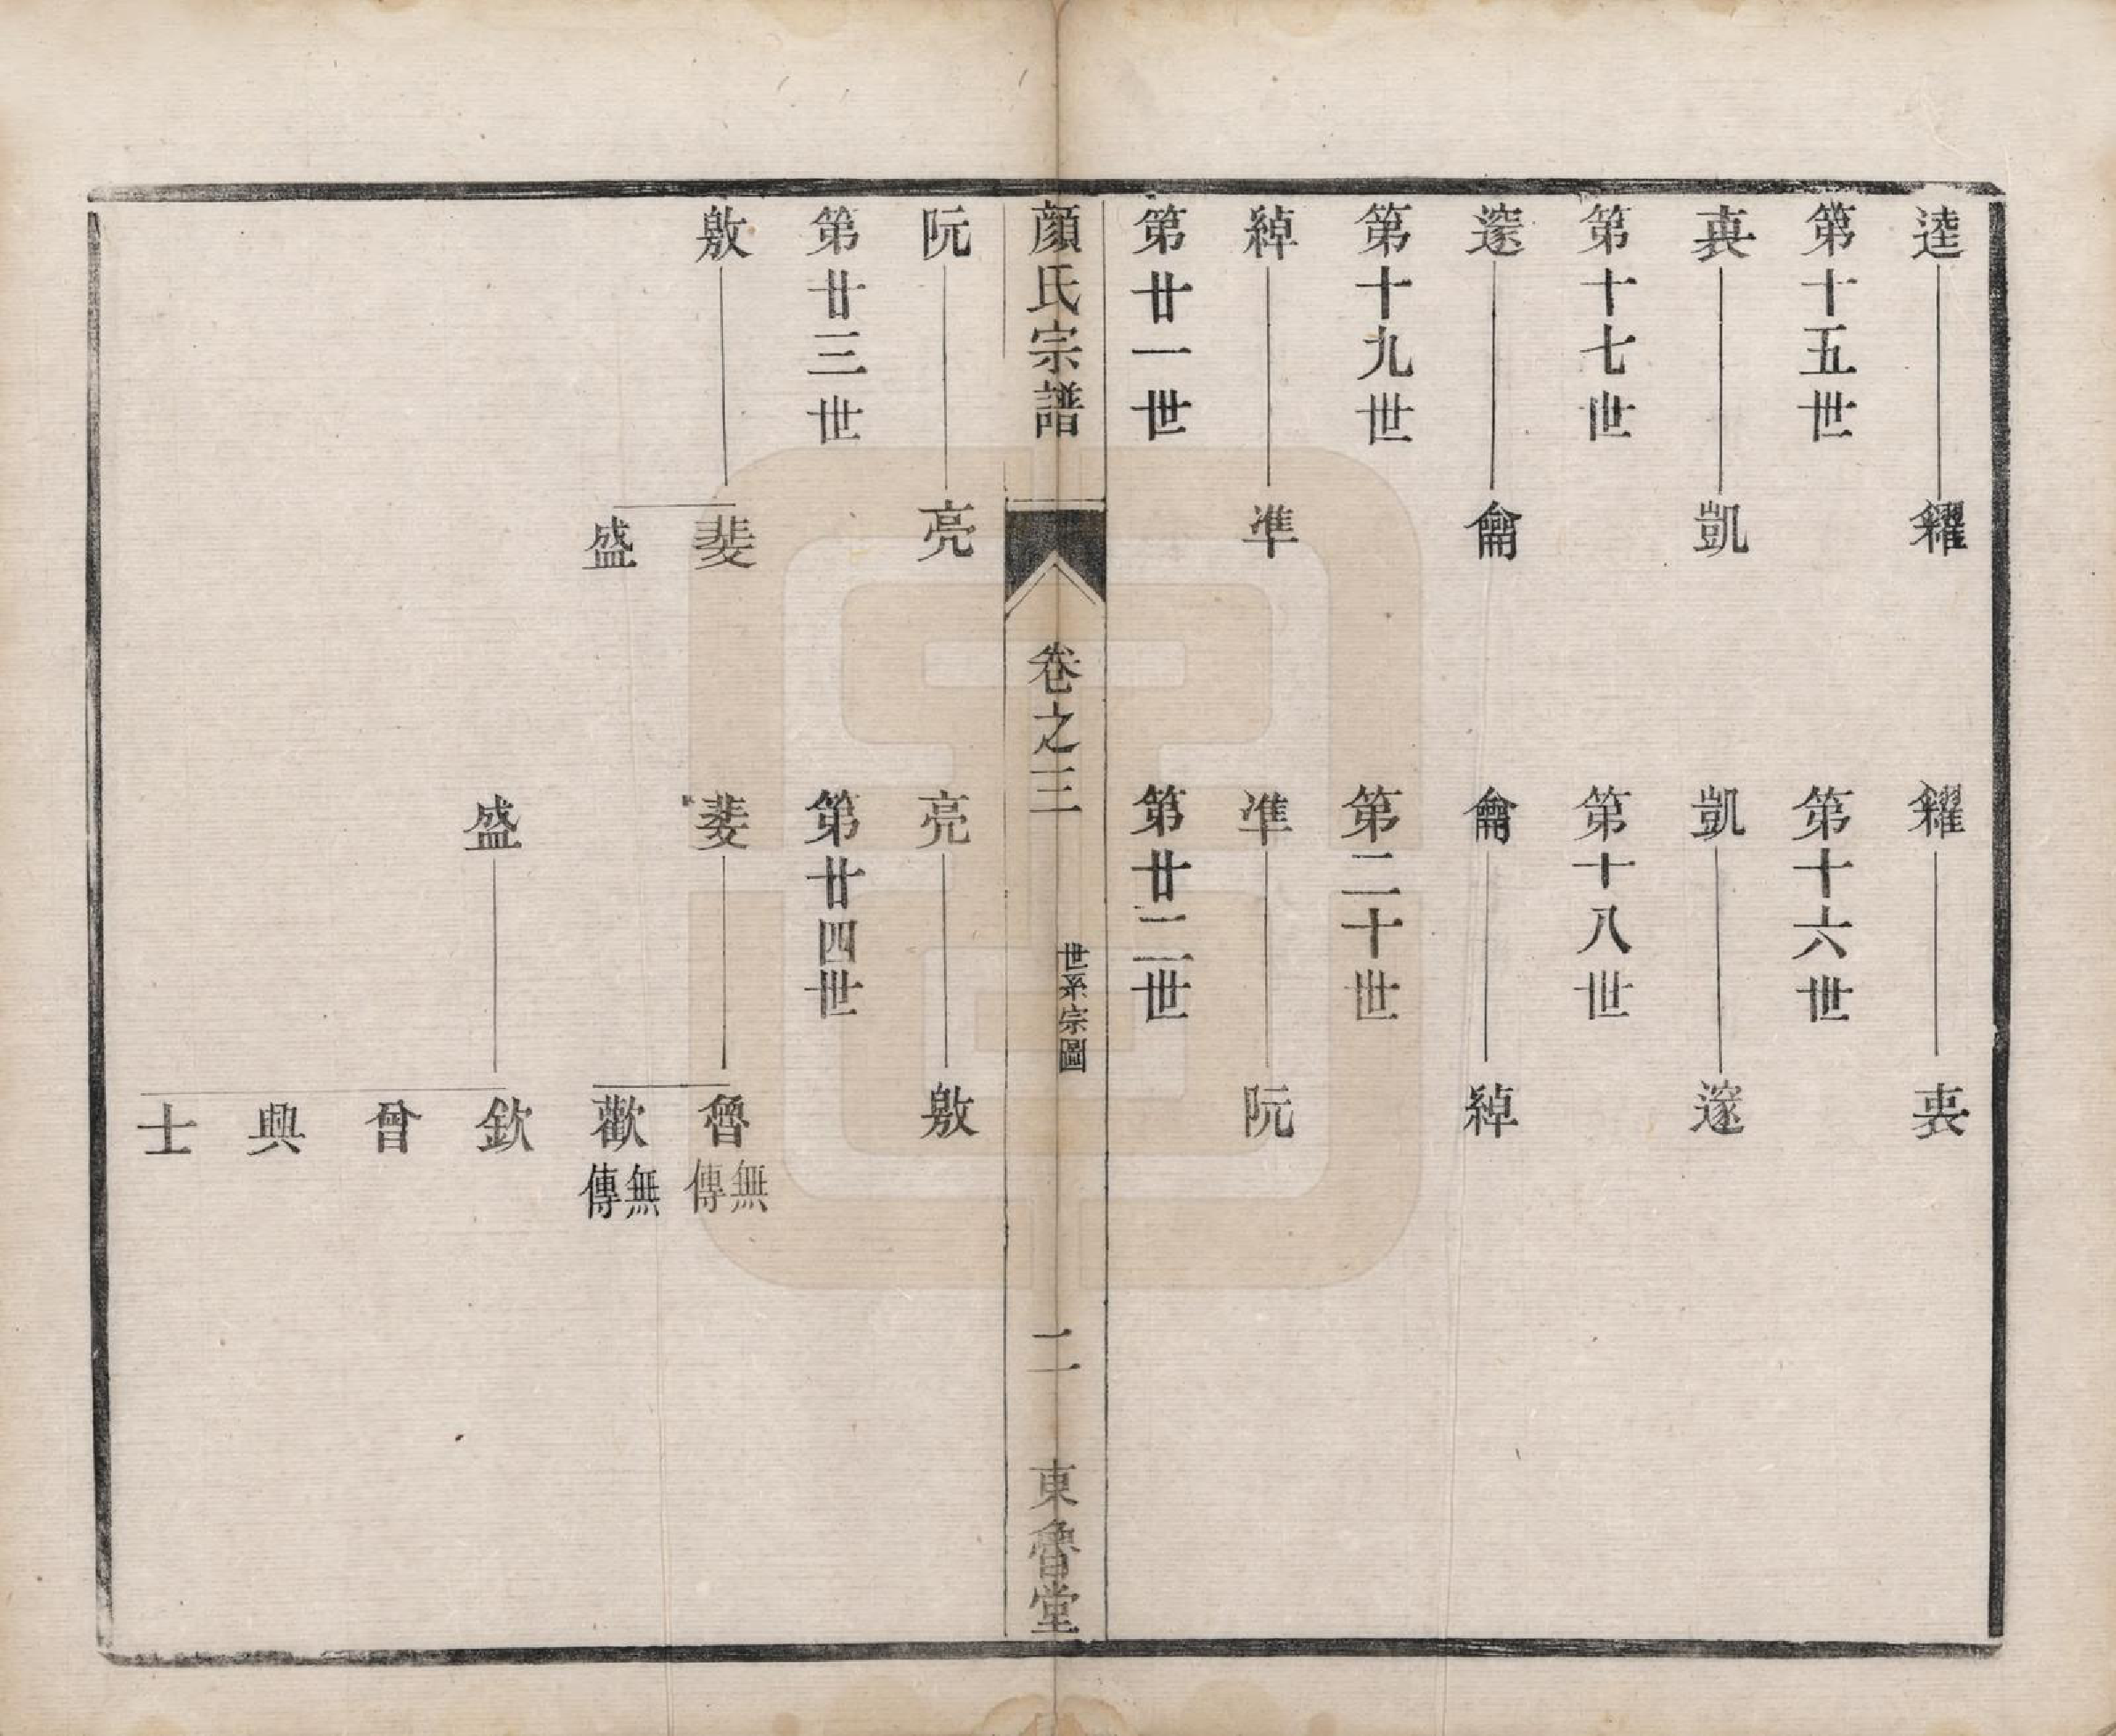 逵 糴 糴 衷
第十五世 第十六世
衷 凱 凱 邃
第十七世 第十八世
邃 龠 龠 綽
第十九世 第二十世
綽 準 準 阮
第廿一世 第廿二世
顔氏宗譜 卷之三 世系宗圖 二 東魯堂
阮 亮 亮 敫
第廿三世 第廿四世
敫 斐 斐 魯 無傳
盛 歡 無傳
盛 欽
曾
興
士